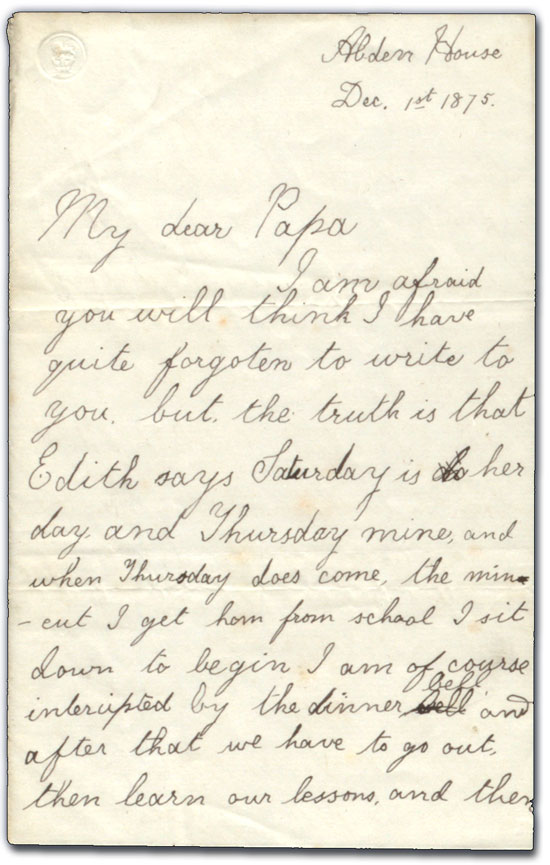 Abden House
Dec. 1st 1875.
My dear Papa
I am afraid
you will think I have
quite forgoten to write to
you. but. the truth is that
Edith says Saturday is her
day and Thursday mine, and
when Thursday does come, the min-
-eut I get hom from school I sit
down to begin I am of course
interupted by the dinner bell and
after that we have to go out,
then learn our lessons, and then